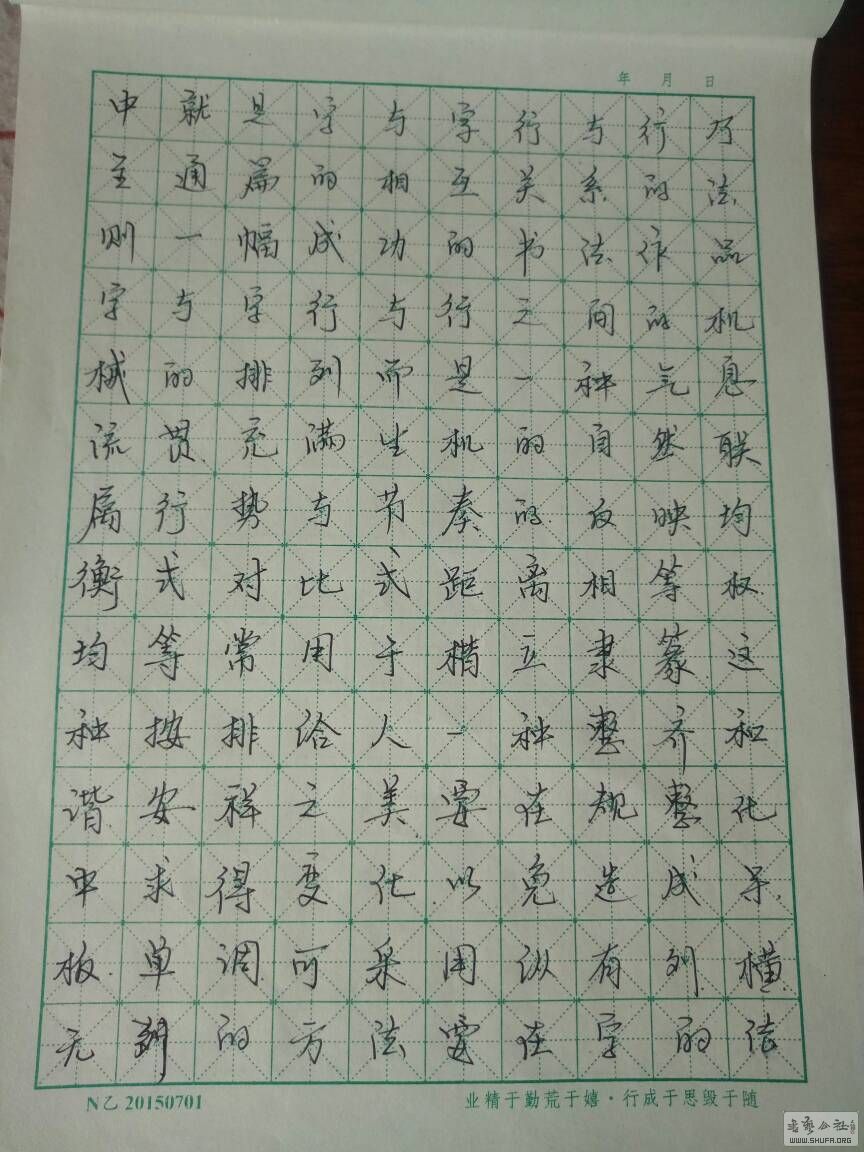 年 月 日
中就是字与字行与行乃
至通篇的相互关系的法
则一幅成功的书法作品
字与字行与行之间的机
械的排列而是一种气息
流贯充满生机的自然联
属行势与节奏的反映均
衡式对比式距离相等权
均等常用于楷立隶篆这
种按排给人一种整齐和
谐安祥之美要在规整化
中求得变化以免造成呆
板单调可采用纵有列横
无列的方法要在字的结
N乙 20150701
业精于勤荒于嬉·行成于思毁于随
书艺公社
WWW.SHUFA.ORG